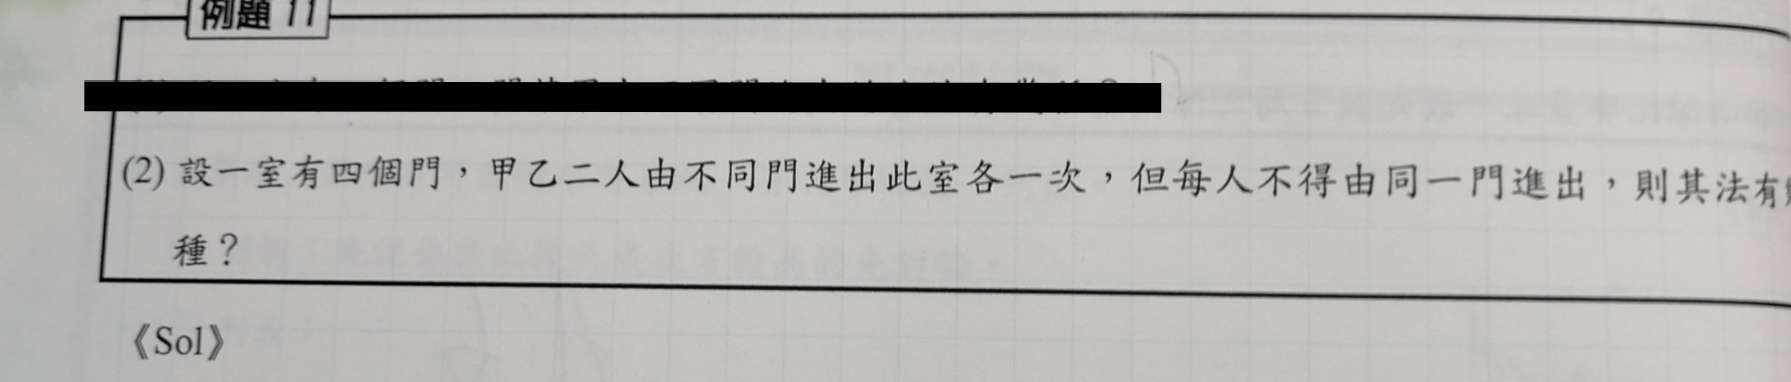 例題 11
(2) 設一室有四個門，甲乙二人由不同門進出此室各一次，但每人不得由同一門進出，則其法有
種？
《Sol》